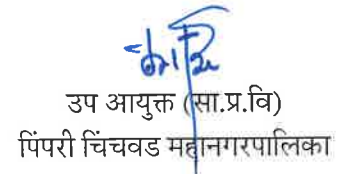 उप आयुक्त (सा.प्र.वि)
पिंपरी चिंचवड महानगरपालिका